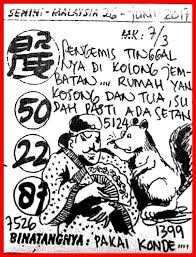 SEMINI - MALAYSIA 26 - JUNI 2011
MK: 7/3
PENGEMIS TINGGAL
NYA DI KOLONG JEM-
BATAN.... RUMAH YAN
KOSONG DAN TUA, SU
DAH PASTI ADA SETAN
5124
50
22
87
7526
1399
BINATANGNYA: PAKAI KONDE....